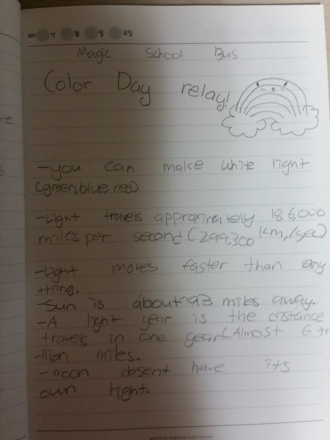 Magic School Bus
Color Day relay!
-you can make white light
(green.blue.red)
-Light travels approximately 186000
miles per second (299,300 km/sec)
-Light moves faster than any
thing.
-Sun is about 93 miles away.
-A light year is the distance
travels in one year (Almost 6 tr
-llion miles.
-moon dosent have its
own light.